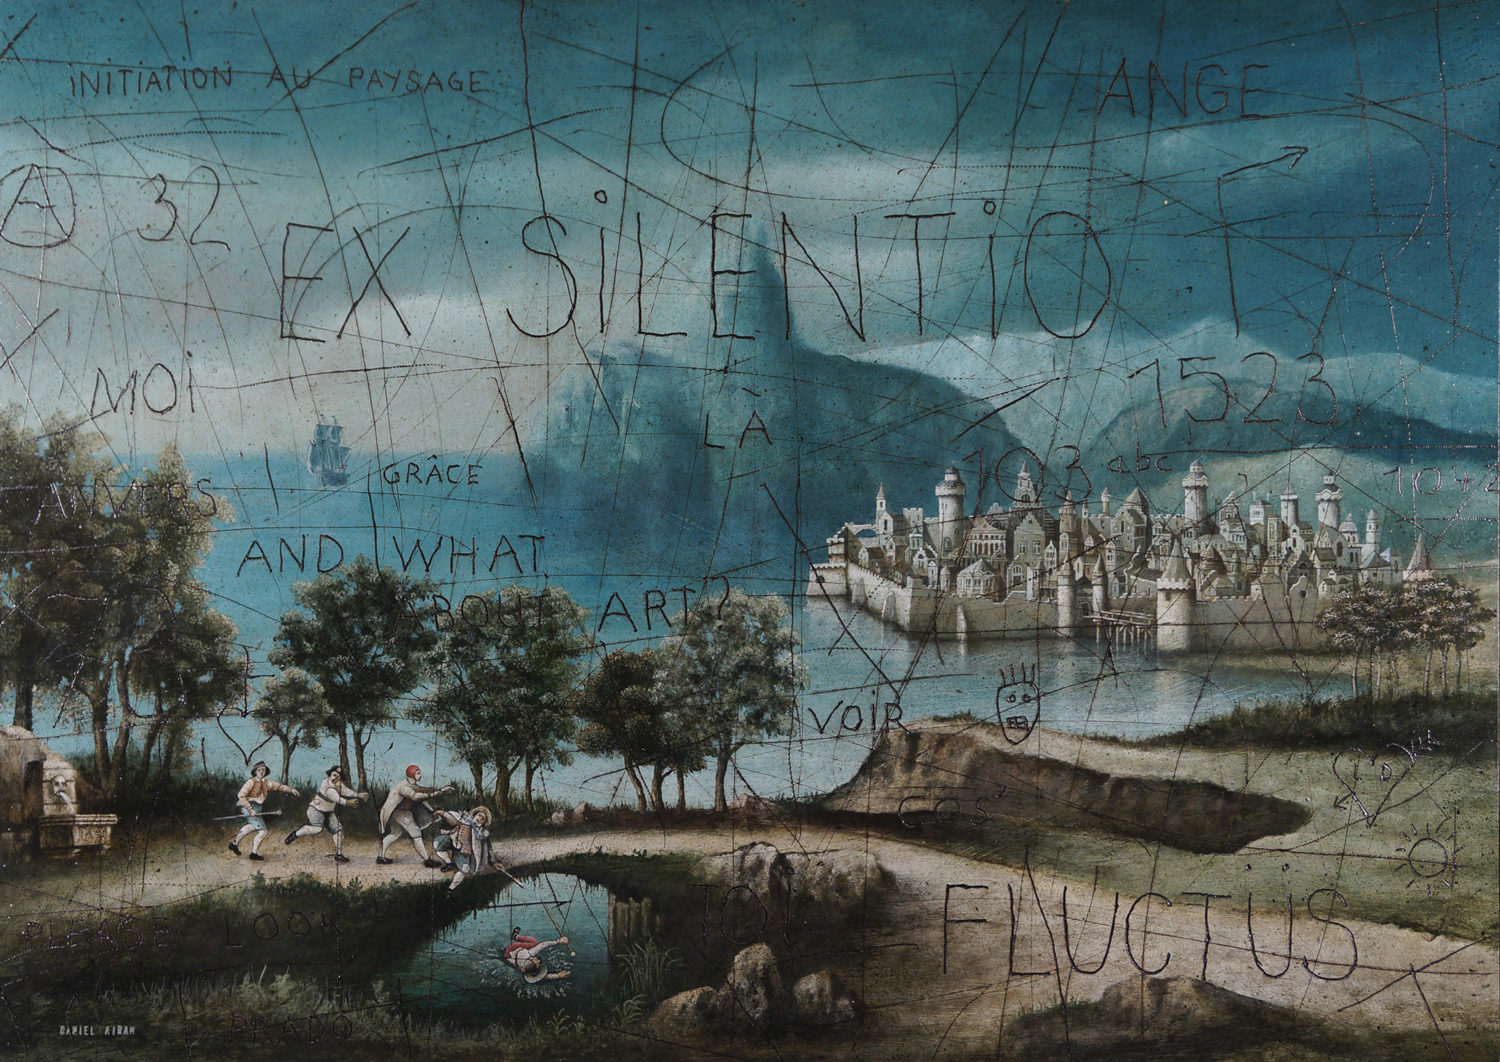 INITIATION AU PAYSAGE
ANGE
A 32
EX SiLENTiO
MOi
1523
LÀ
GRÂCE
103 abc
ANVERS
AND WHAT
ABOUT ART?
VOIR
COS²
TOi
FLUCTÜS
PLEASE LOOK
PRADO
DANIEL AIRAM